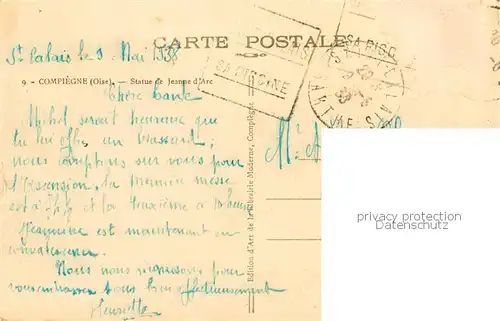 CARTE POSTALE
St Palais le 9 Mai 1938
9 - COMPIÈGNE (Oise). — Statue de Jeanne d'Arc
Chère tante
Michel serait heureux que
tu lui offres un brassard ;
nous comptons sur vous pour
l'Ascension, la première messe
est à 7 h ½ et la deuxième à 10 heures
Jeannine est maintenant en
convalescence.
Nous nous réjouissons pour
vous embrasser tous bien affectueusement
Henriette
Edition d'Art de la Librairie Moderne, Compiègne
SA PISCINE
SA PISC
privacy protection
Datenschutz